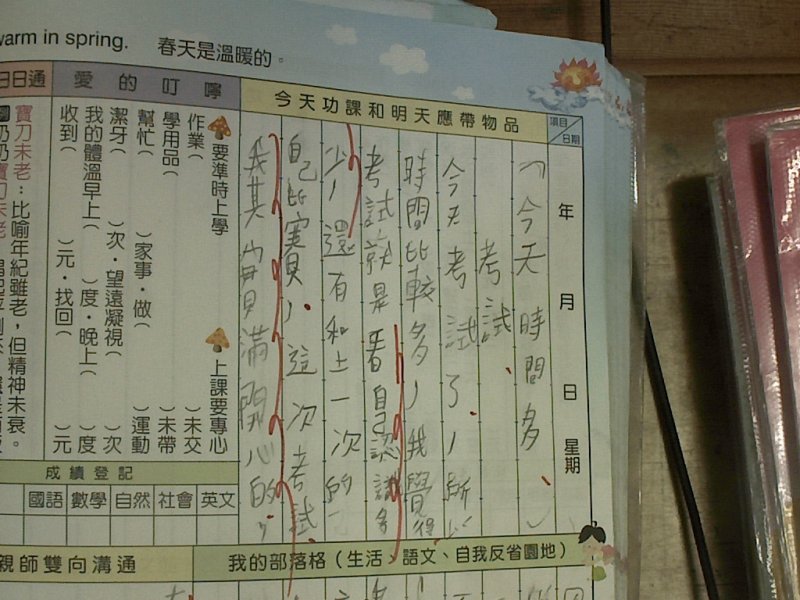 warm in spring. 春天是溫暖的。
日日通
愛的叮嚀
今天功課和明天應帶物品
項目
日期
年 月 日 星期
(今天時間多、)
考試、
今天考試了,所以
時間比較多,我覺得
考試就是看自己認識多
少,還有和上一次的
自己比賽,這次考試
我其實滿開心的,
要準時上學
上課要專心
作業( )未交
學用品( )未帶
幫忙( )家事·做( )運動
潔牙( )次·望遠凝視( )次
我的體溫早上( )度·晚上( )度
收到( )元·找回( )元
寶刀未老:比喻年紀雖老,但精神未衰。
成績登記
國語 數學 自然 社會 英文
親師雙向溝通
我的部落格(生活、語文、自我反省園地)